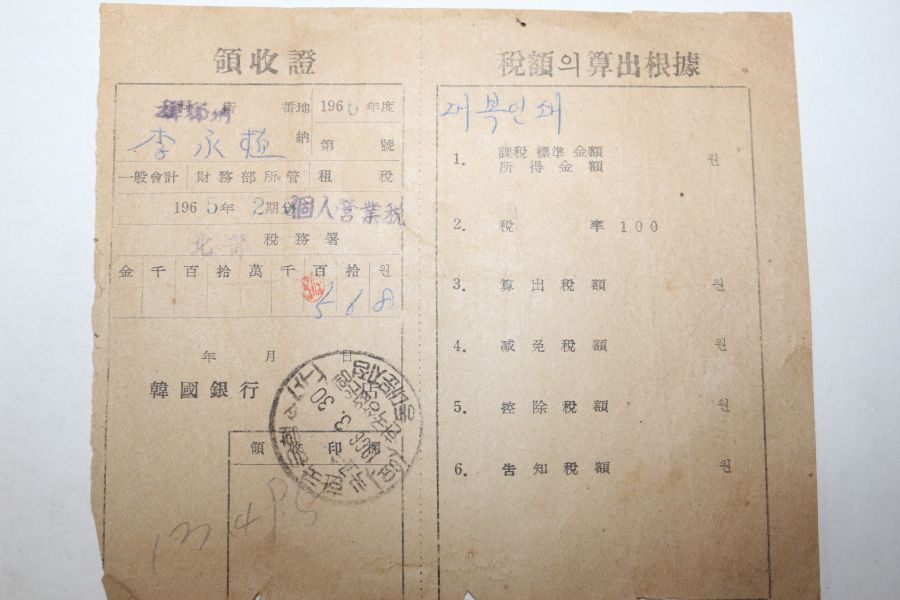 領收證
街 番地 196 年度
李永植 納 第 號
一般會計 財務部所管 租 稅
1965年 2期分 個人營業稅
北部 稅務署
金 千 百 拾 萬 千 百 拾 원
5 6 8
年 月 日
韓國銀行
領收印
1966. 3. 30
稅額의 算出根據
1. 課稅標準金額 원
所得金額
2. 稅 率 100
3. 算出稅額 원
4. 減免稅額 원
5. 控除稅額 원
6. 告知稅額 원